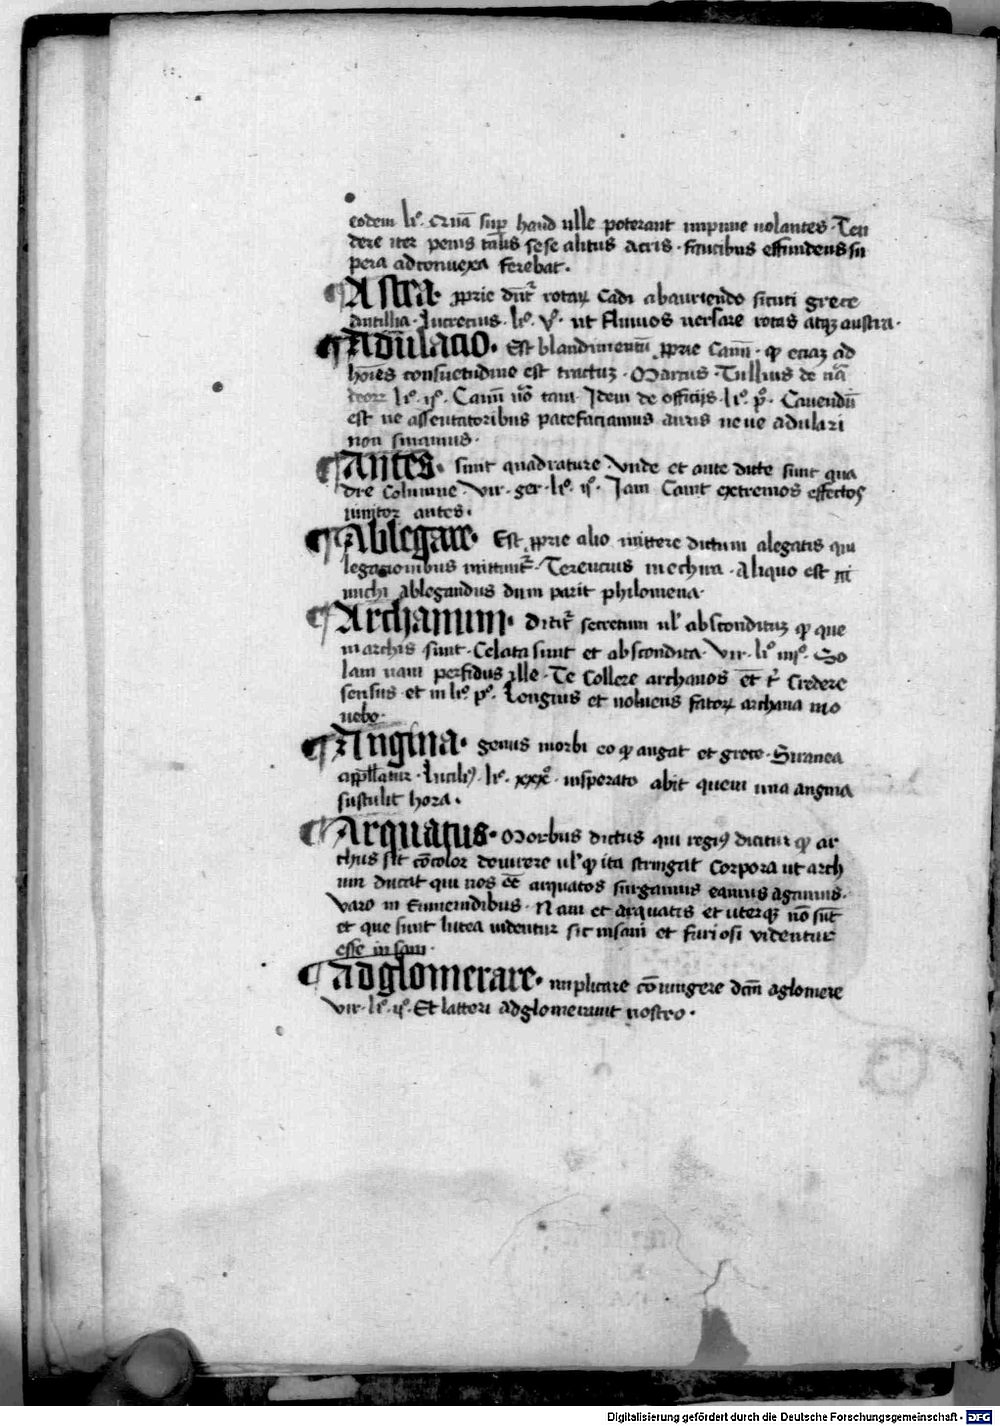 eodem li͂º. Quā sup͂ haud ulle poterant inpune uolantes. Ten
dere iter penis talis sese alitus acris. faucibus effundens su
pera ad conuexa ferebat.
¶ Astra. ꝓprie dūt᷑ rotaꝝ Cadi abauriendo sicuti grece
antillia. Lucretius. li͂º. vº. ut fluuios uersare rotas atqꝫ austra.
¶ Adūlacio. Est blandimentū ꝓprie Canū. ꝙ eciaꝫ ad
hoīes consuetudine est tractuꝫ. Marcus. Tullius de nā
deoꝝ li͂º. ijº. Canū uº tam. Idem de officijs. li͂º. pº. Cauendū
est ne assentatoribus patefaciamus auris neue adulari
non sinamus.
¶ Antes. sunt quadrature. Vnde et ante dicte sunt qua
dre Columne. Vir. ger. li͂º. ijº. Jam Canit extremos effectos
uinitor antes.
¶ Ablegare. Est ꝓprie alio mittere dictum alegatis qui
legacionibus mittunt᷑. Terencius in echira. Aliquo est mi
michi ablegandus dum parit philomena.
¶ Archanum. Dicit᷑ secretum ul' abscondituꝫ ꝙ que
in archis sunt. Celata sunt et abscondita. Vir. li͂º iiijº. So
lam nam perfidus ille. Te Collere archanos et t᷑ Credere
sensus. et in li͂º. pº. Longius et uoluens fatoꝝ archana mo
uebo.
¶ Angina. genus morbi eo ꝙ angat et grece. Sinanea
appllatur. Lucili9. li͂º. xxxº. insperato abit quem una angina
sustulit hora.
¶ Arquatus. Morbus dictus qui regi9 dicitur ꝙ ar
chus sit cōcolor deuirere ul' ꝙ ita stringat Corpora ut arch
um ducat qui nos eē arquatos surgamus eamus agamus.
Varo in Eumenidibus. Nam et arquatis et uterqꝫ nō sūt
et que sunt lutea uidentur sic insani et furiosi videntur
esse insani.
¶ Adglomerare. inplicare cōiungere dcm̄ aglomere
Vir. li͂º. ijº. Et lateri adglomerant nostro.
Digitalisierung gefördert durch die Deutsche Forschungsgemeinschaft - DFG